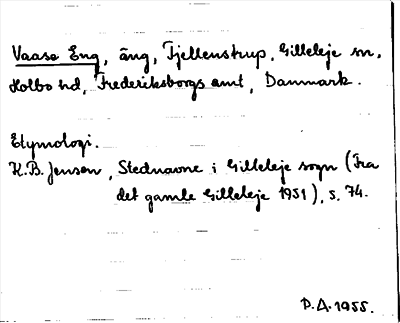 Vaase Eng, äng, Fjellenstrup, Gilleleje sn,
Holbo hd, Frederiksborgs amt, Danmark.
Etymologi.
K.B. Jensen, Stednavne i Gilleleje sogn (Fra
det gamle Gilleleje 1951), s. 74.
P.A. 1955.